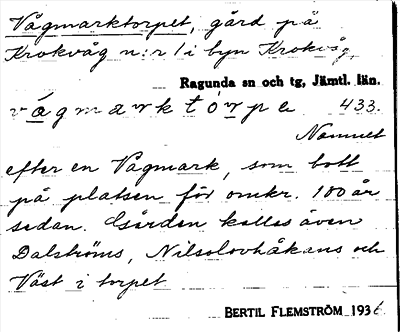 Vågmarktorpet, gård på
Krokvåg n:r 1 i byn Krokvåg,
Ragunda sn och tg, Jämtl. län.
vågmarktórpe 433.
Namnet
efter en Vågmark, som bott
på platsen för omkr. 100 år
sedan. Gården kallas även
Dalströms, Nilsolovhåkans och
Väst i torpet
BERTIL FLEMSTRÖM 1936.